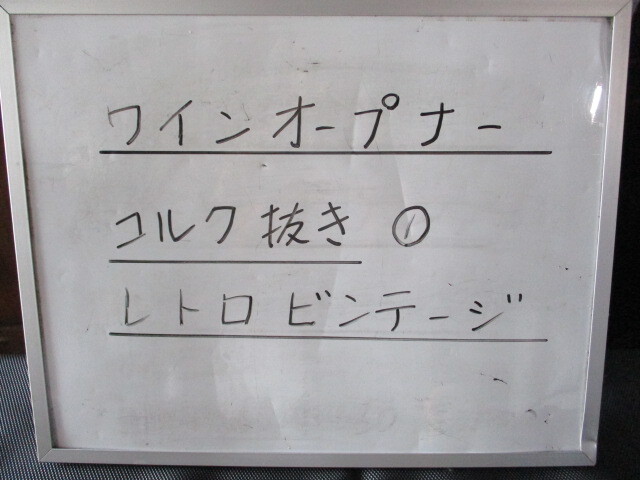 ワインオープナー
コルク抜き ①
レトロ ビンテージ